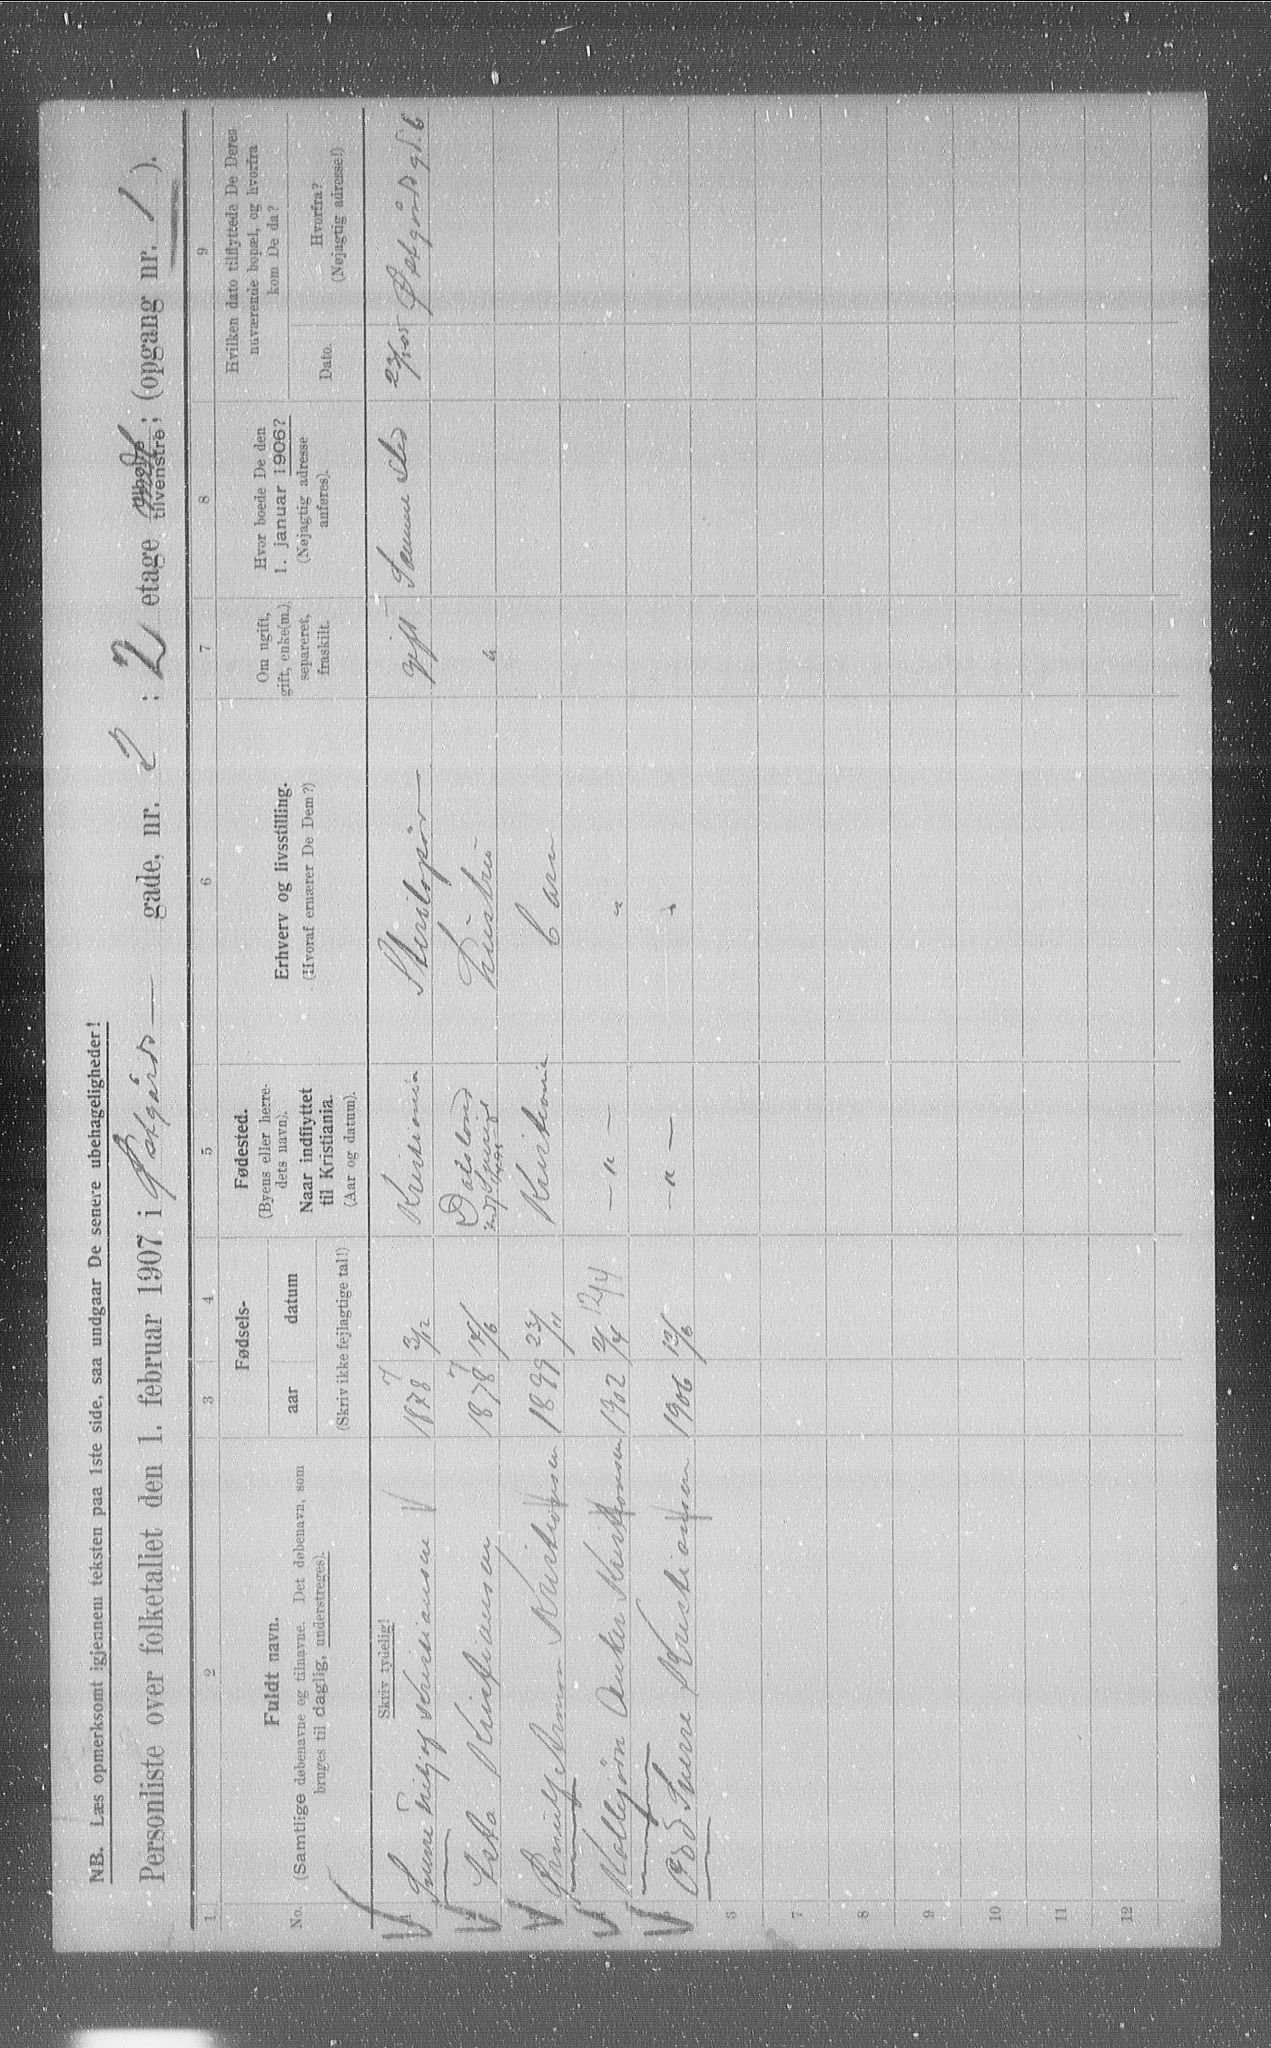 NB. Læs opmerksomt igjennem teksten paa 1ste side, saa undgaar De senere ubehageligheder!
Personliste over folketallet den 1. februar 1907 i Østgårds — gade, nr. 2 ; 2 etage tilvenstre; (opgang nr. 1 ).
1 2 3 4 5 6 7 8 9
No.
Fuldt navn.
(Samtlige døbenavne og tilnavne. Det døbenavn, som
bruges til daglig, understreges).
Skriv tydelig!
Fødsels-
aar datum
(Skriv ikke fejlagtige tal!)
Fødested.
(Byens eller herre-
dets navn).
Naar indflyttet
til Kristiania.
(Aar og datum).
Erhverv og livsstilling.
(Hvoraf ernærer De Dem?)
Om ugift,
gift, enke(m.),
separeret,
fraskilt.
Hvor boede De den
1. januar 1906?
(Nøjagtig adresse
anføres).
Hvilken dato tilflyttede De Deres
nuværende bopæl, og hvorfra
kom De da?
Dato.
Hvorfra?
(Nøjagtig adresse!)
1 Kristiansen 1878 2/12 Kristiania gift Samme sted Østgårds gd. 6
2 Kristiansen 1878 Dalsland Hustru "
3 Arman Kristiansen 1899 23/11 Kristiania Barn
4 Kolbjørn Anker Kristiansen 1902 2/4 12/4 — " — "
5 Odd Sverre Kristiansen 1906 12/6 — " — "
6
7
8
9
10
11
12